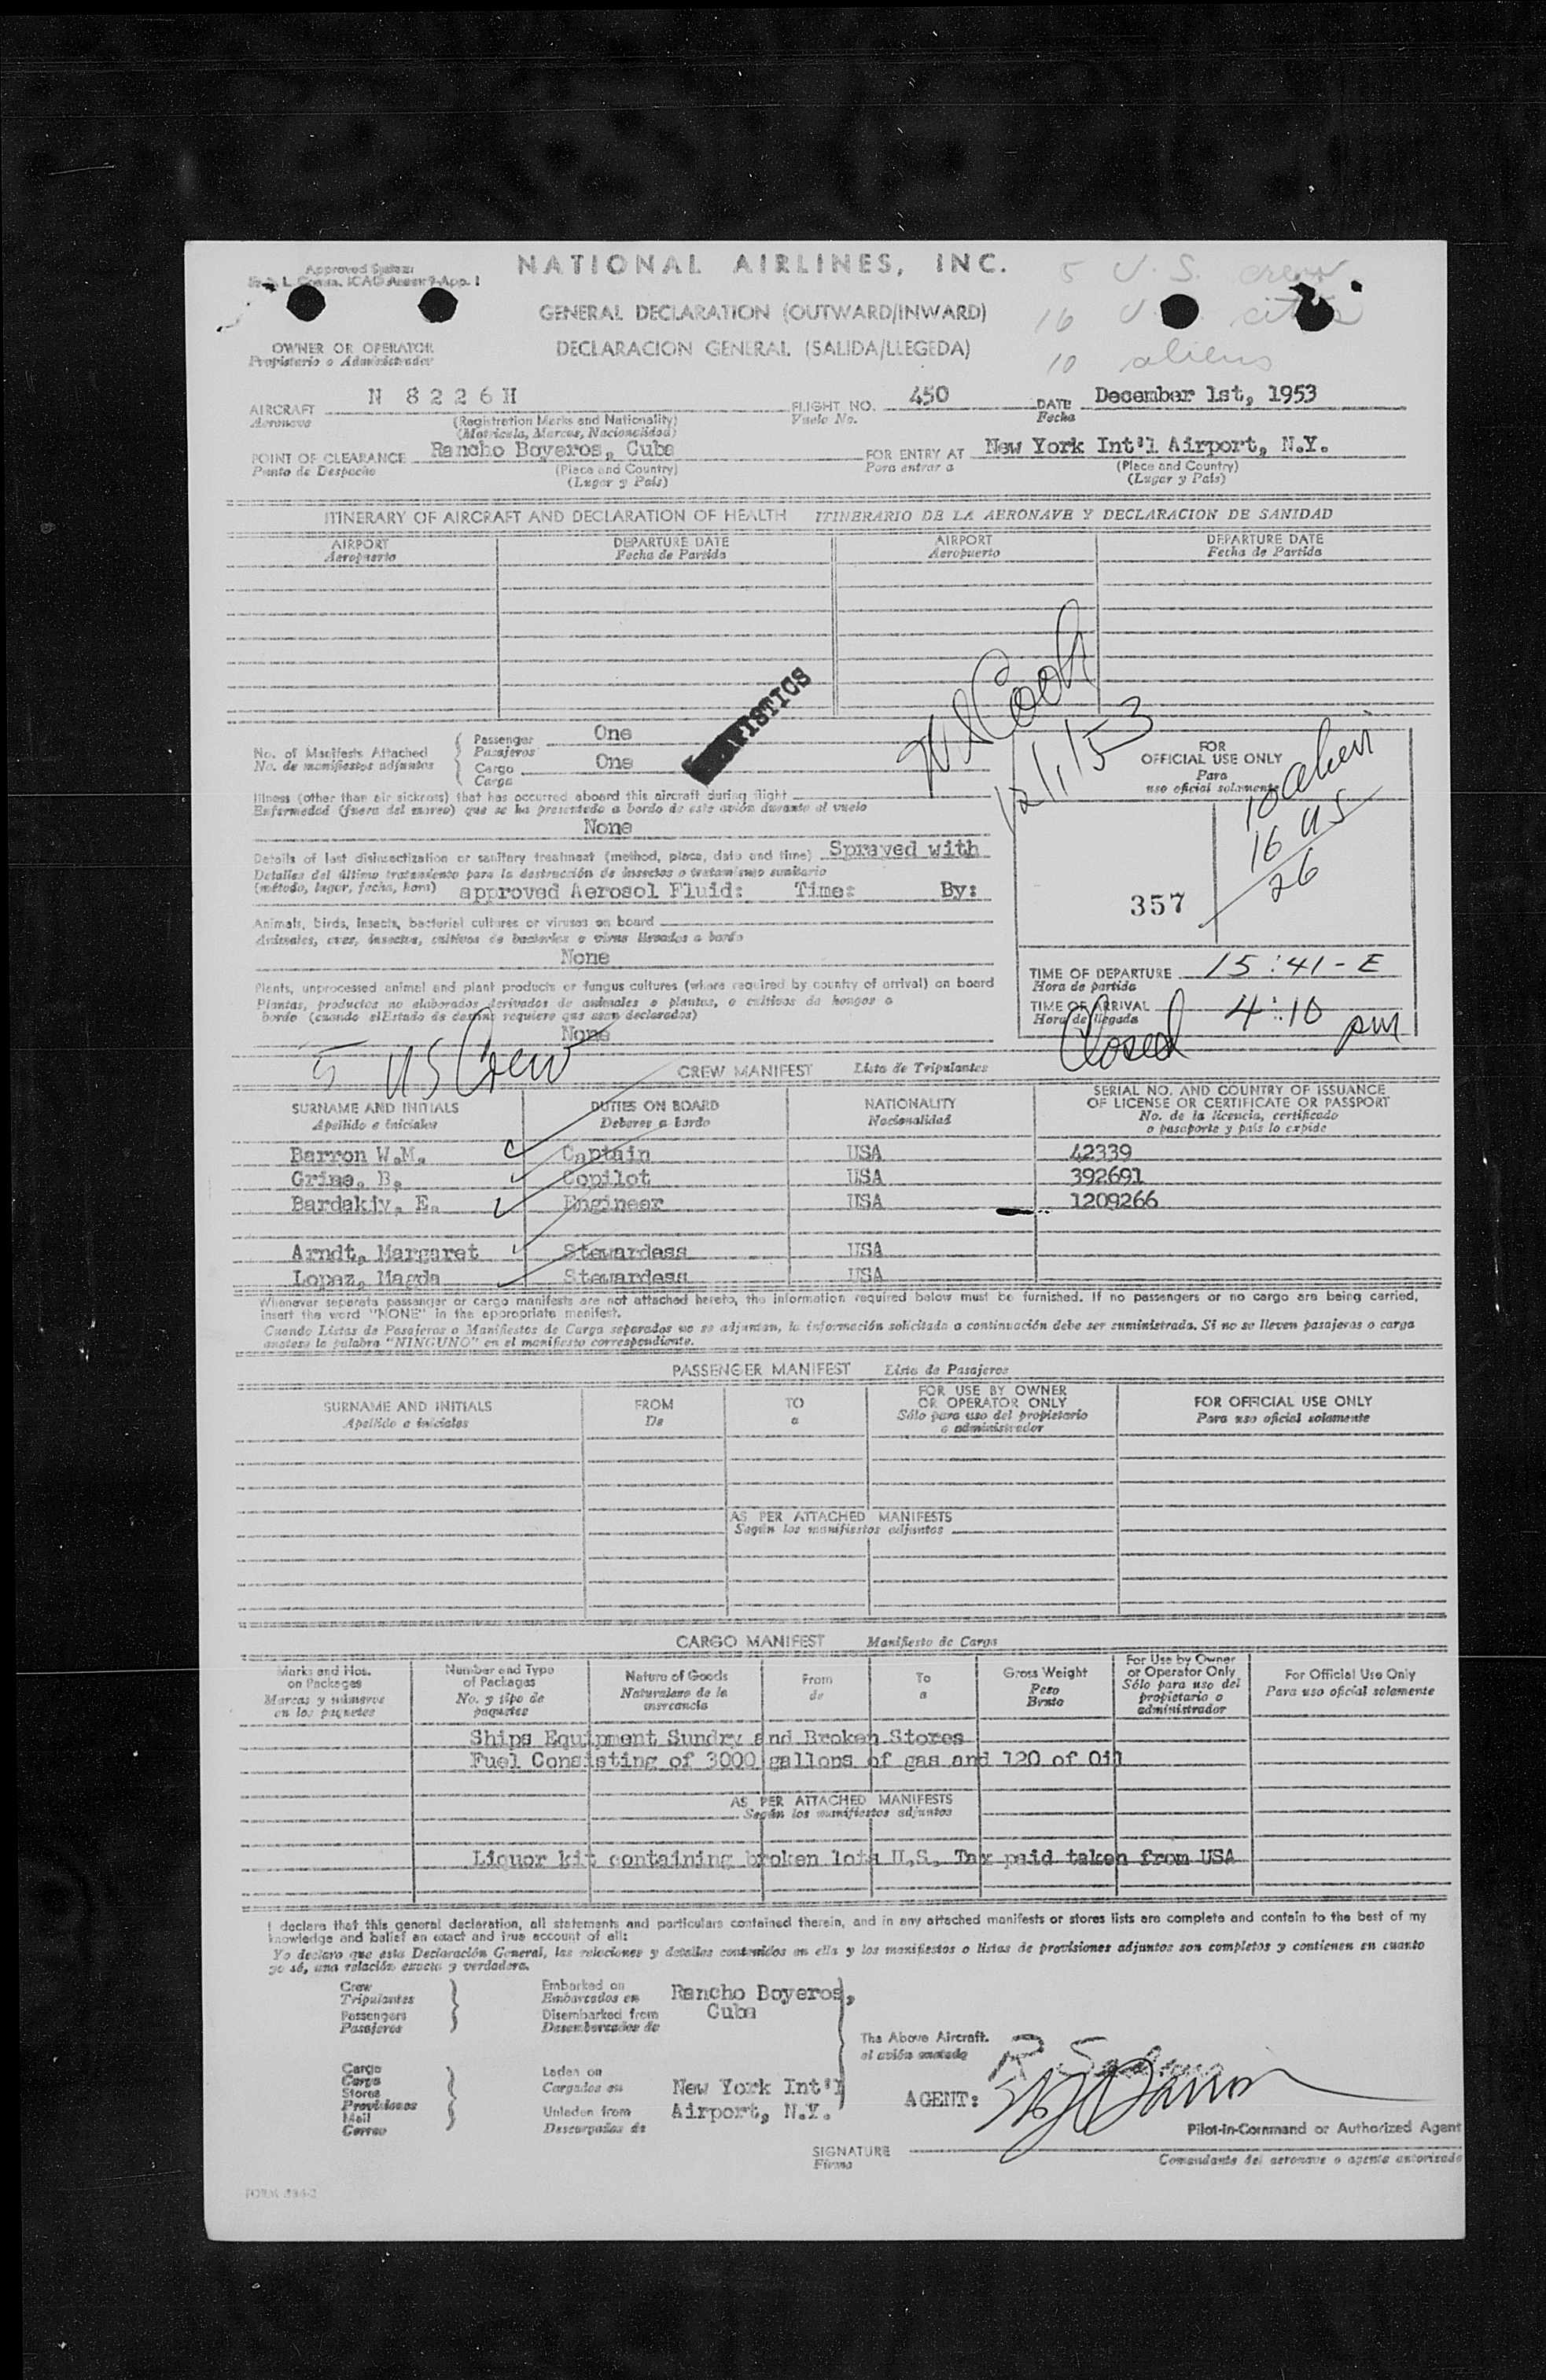 Approved
ICAO Annex 9-App. 1
NATIONAL AIRLINES, INC.
5 U.S. crew
GENERAL DECLARATION (OUTWARD/INWARD)
16 U.
OWNER OR OPERATOR
Propietario o Administrador
DECLARACION GENERAL (SALIDA/LLEGEDA)
10 aliens
AIRCRAFT N 8226H FLIGHT NO. 450 DATE December 1st, 1953
Aeronave (Registration Marks and Nationality) Vuelo No. Fecha
(Matricula, Marcas, Nacionalidad)
POINT OF CLEARANCE Rancho Boyeros, Cuba FOR ENTRY AT New York Int'l Airport, N.Y.
Punto de Despacho (Place and Country) Para entrar a (Place and Country)
(Lugar y País) (Lugar y País)
ITINERARY OF AIRCRAFT AND DECLARATION OF HEALTH ITINERARIO DE LA AERONAVE Y DECLARACION DE SANIDAD
AIRPORT DEPARTURE DATE AIRPORT DEPARTURE DATE
Aeropuerto Fecha de Partida Aeropuerto Fecha de Partida
12/1/53
No. of Manifests Attached Passenger One
No. de manifiestos adjuntos Pasajeros
Cargo One
Carga
FOR
OFFICIAL USE ONLY
Para
uso oficial solamente
10 alien
16 US
26
357
Illness (other than air sickness) that has occurred aboard this aircraft during flight
Enfermedad (fuera del mareo) que se ha presentado a bordo de este avión durante el vuelo
None
Details of last disinsectization or sanitary treatment (method, place, date and time) Sprayed with
Detalles del último tratamiento para la destrucción de insectos o tratamiento sanitario
(método, lugar, fecha, hora) approved Aerosol Fluid: Time: By:
Animals, birds, insects, bacterial cultures or viruses on board
Animales, aves, insectos, cultivos de bacterias o virus llevados a bordo
None
Plants, unprocessed animal and plant products or fungus cultures (where required by country of arrival) on board
Plantas, productos no elaborados derivados de animales o plantas, o cultivos de hongos a
bordo (cuando el Estado de destino requiere que sean declarados)
None
TIME OF DEPARTURE 15:41-E
Hora de partida
TIME OF ARRIVAL 4:10 pm
Hora de llegada
Closed
5 US Crew
CREW MANIFEST Lista de Tripulantes
SURNAME AND INITIALS DUTIES ON BOARD NATIONALITY SERIAL NO. AND COUNTRY OF ISSUANCE
OF LICENSE OR CERTIFICATE OR PASSPORT
Apellido e iniciales Deberes a bordo Nacionalidad No. de la licencia, certificado
o pasaporte y país lo expide
Barron W.M. Captain USA 42339
Grine, B. Copilot USA 392691
Bardakjy, E. Engineer USA 1209266
Arndt, Margaret Stewardess USA
Lopez, Magda Stewardess USA
Whenever separate passenger or cargo manifests are not attached hereto, the information required below must be furnished. If no passengers or no cargo are being carried,
insert the word "NONE" in the appropriate manifest.
Cuando Listas de Pasajeros o Manifiestos de Carga separados no se adjuntan, la información solicitada a continuación debe ser suministrada. Si no se lleven pasajeros o carga
anotese la palabra "NINGUNO" en el manifiesto correspondiente.
PASSENGER MANIFEST Lista de Pasajeros
SURNAME AND INITIALS FROM TO FOR USE BY OWNER FOR OFFICIAL USE ONLY
OR OPERATOR ONLY
Apellido e iniciales De a Sólo para uso del propietario Para uso oficial solamente
o administrador
AS PER ATTACHED MANIFESTS
Según los manifiestos adjuntos
CARGO MANIFEST Manifiesto de Carga
Marks and Nos. Number and Type Nature of Goods From To Gross Weight For Use by Owner For Official Use Only
on Packages of Packages or Operator Only
Marcas y números No. y tipo de Naturaleza de la de a Peso Sólo para uso del Para uso oficial solamente
en los paquetes paquetes mercancia Bruto propietario o
administrador
Ships Equipment Sundry and Broken Stores
Fuel Consisting of 3000 gallons of gas and 120 of Oil
AS PER ATTACHED MANIFESTS
Según los manifiestos adjuntos
Liquor kit containing broken lots U.S. Tax paid taken from USA
I declare that this general declaration, all statements and particulars contained therein, and in any attached manifests or stores lists are complete and contain to the best of my
knowledge and belief an exact and true account of all:
Yo declaro que esta Declaración General, las relaciones y detalles contenidos en ella y los manifiestos o listas de provisiones adjuntos son completos y contienen en cuanto
yo sé, una relación exacta y verdadera.
Crew Embarked on Rancho Boyeros,
Tripulantes Embarcados en Cuba
Passengers Disembarked from
Pasajeros Desembarcados de
The Above Aircraft.
el avión anotado
Cargo Laden on New York Int'l
Carga Cargados en Airport, N.Y.
Stores
Provisiones Unladen from
Mail Descargados de
Correo
AGENT:
Pilot-in-Command or Authorized Agent
SIGNATURE
Firma
Comandante del aeronave o agente autorizado